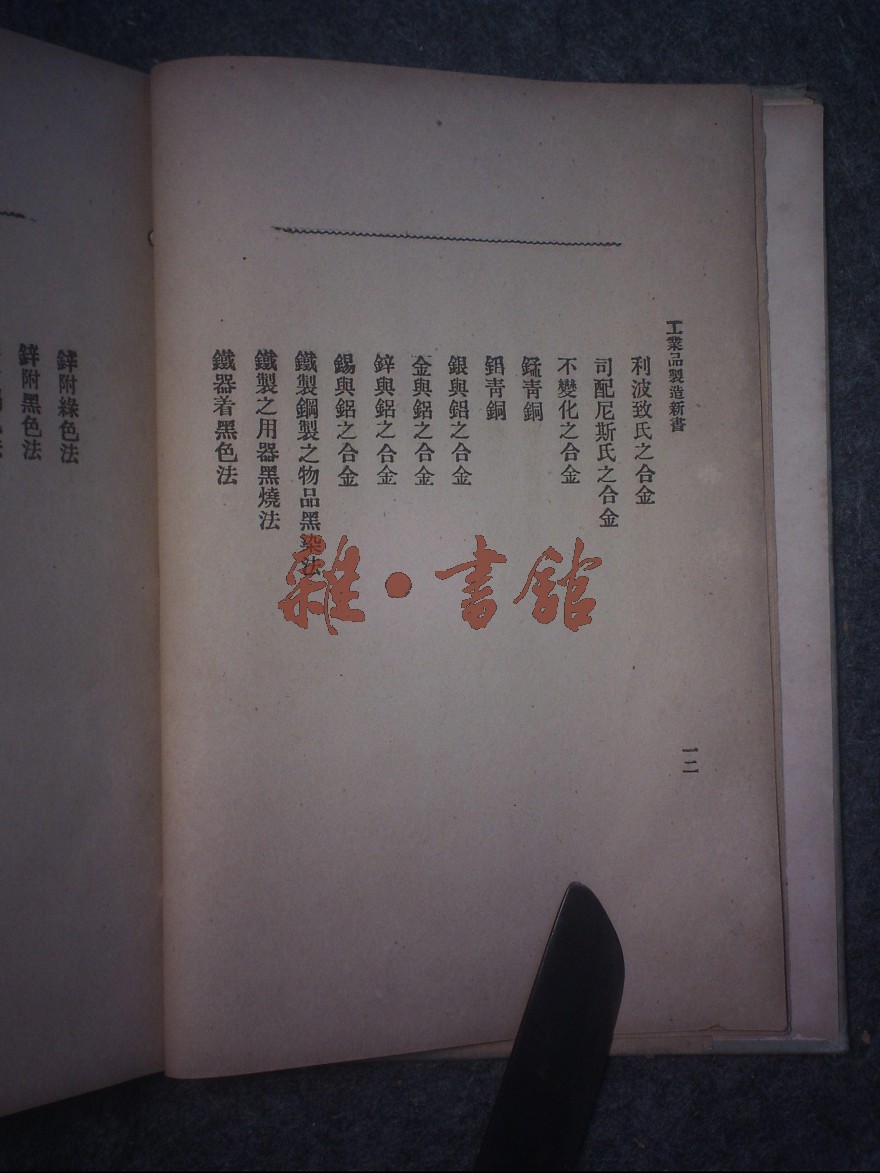 工業品製造新書
利波致氏之合金
司配尼斯氏之合金
不變化之合金
錳青銅
鋁青銅
銀與鋁之合金
金與鋁之合金
鋅與鋁之合金
錫與鋁之合金
鐵製鋼製之物品黑染法
鐵製之用器黑燒法
鐵器着黑色法
一二
鋅附綠色法
鋅附黑色法
雜·書館